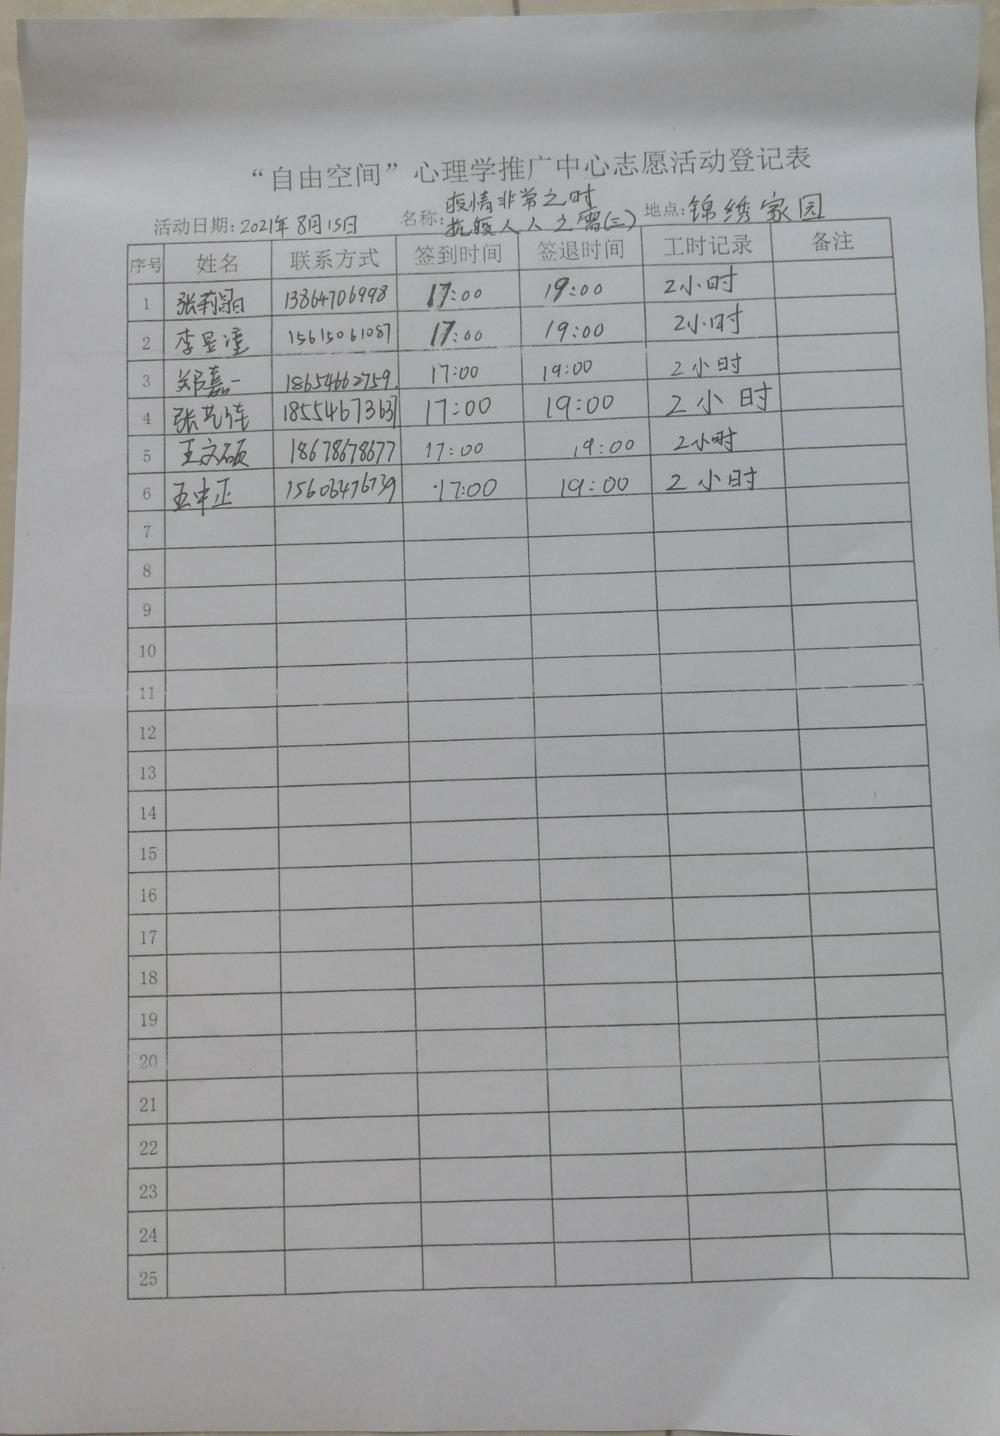 “自由空间”心理学推广中心志愿活动登记表
活动日期: 2021年8月15日 名称: 疫情非常之时 抗疫人人之需(三) 地点: 锦绣家园
序号 姓名 联系方式 签到时间 签退时间 工时记录 备注
1 张莉 13864706998 17:00 19:00 2小时
2 李显潼 15615061087 17:00 19:00 2小时
3 郑嘉一 18654662759. 17:00 19:00 2小时
4 张艺 18554673637 17:00 19:00 2小时
5 王文硕 18678678677 17:00 19:00 2小时
6 王中正 15606476739 17:00 19:00 2小时
7
8
9
10
11
12
13
14
15
16
17
18
19
20
21
22
23
24
25